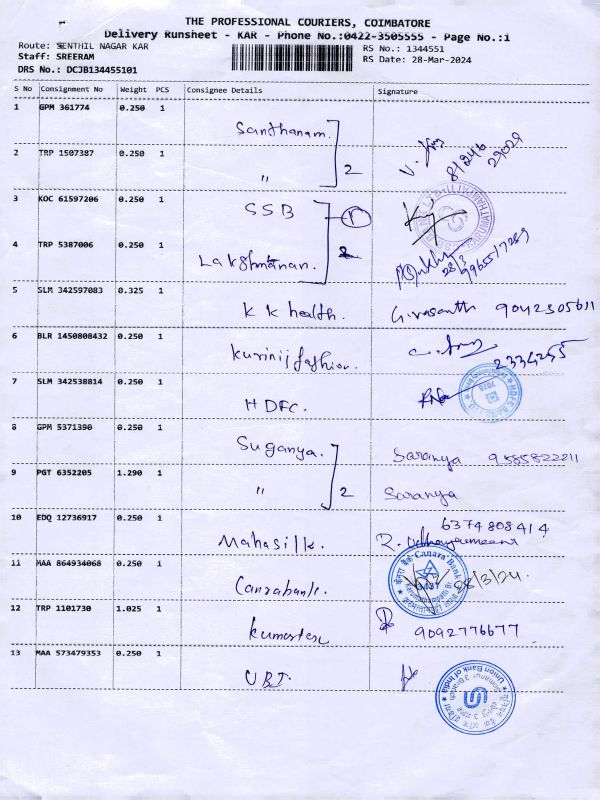 THE PROFESSIONAL COURIERS, COIMBATORE
Delivery Runsheet - KAR - Phone No.:0422-3505555 - Page No.:1
Route: SENTHIL NAGAR KAR
RS No.: 1344551
Staff: SREERAM
RS Date: 28-Mar-2024
DRS No.: DCJB134455101
S No Consignment No Weight PCS Consignee Details Signature
1 GPM 361774 0.250 1
Santhanam.
2 TRP 1507387 0.250 1
" 2
3 KOC 61597206 0.250 1
SSB
4 TRP 5387006 0.250 1
Lakshmanan. 2
5 SLM 342597083 0.325 1
K K health. G.vasanth 9042305611
6 BLR 1450808432 0.250 1
Kurinji fashion. 2334255
7 SLM 342538814 0.250 1
HDFC.
8 GPM 5371390 0.250 1
Suganya. Saranya 9585822211
9 PGT 6352205 1.290 1
" 2 Saranya
10 EDQ 12736917 0.250 1
6374808414
Mahasilk.
11 MAA 864934068 0.250 1
Canara Bank
Canrabank.
12 TRP 1101730 1.025 1
9092776677
13 MAA 573479353 0.250 1
UBI.
Union Bank of India